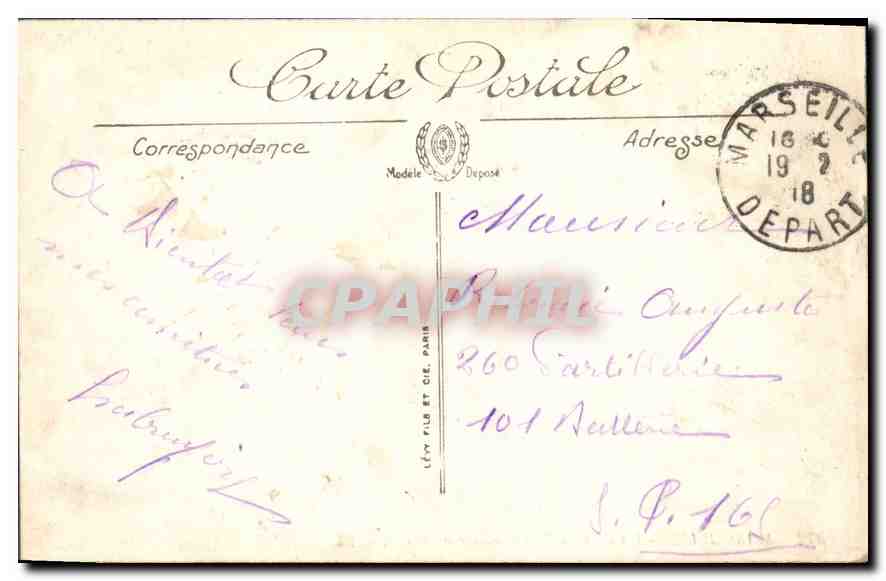 Carte Postale
Correspondance
Adresse
Modèle Déposé
MARSEILLE
16
19 2
18
DEPART
A Bientôt
mes amitiés
LÉVY FILS ET CIE, PARIS
CPAPHIL
Monsieur
Auguste
260 d'artillerie
101 Batterie
S. P. 165